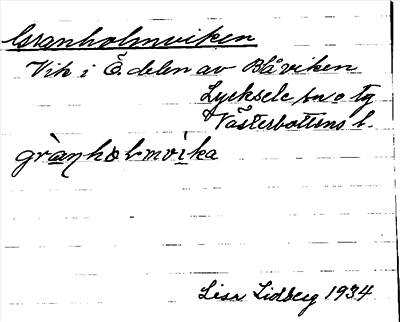 Granholmviken
Vik i Ö. delen av Blåviken
Lycksele sn o tg
Västerbottens l.
grànhòlmvi̱ka
Lisa Lidberg 1934